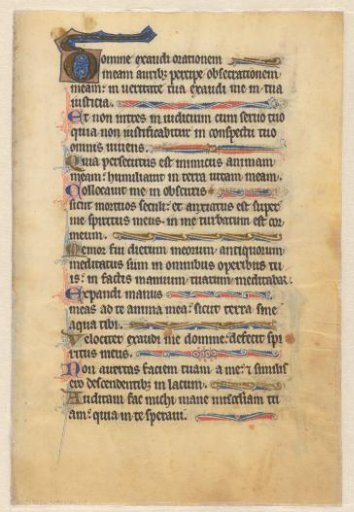 Domine exaudi orationem
meam auribꝫ percipe obsecrationem
meam: in veritate tua exaudi me in tua
iusticia.
Et non intres in iudicium cum seruo tuo
quia non iustificabitur in conspectu tuo
omnis uiuens.
Quia persecutus est inimicus animam
meam: humiliauit in terra uitam meam.
Collocauit me in obscuris
sicut mortuos seculi: et anxiatus est super
me spiritus meus. in me turbatum est cor
meum.
Memor fui dierum meorum antiquorum
meditatus sum in omnibus operibus tu
is: in factis manuum tuarum meditabar.
Expandi manus
meas ad te anima mea: sicut terra sine
aqua tibi.
Velociter exaudi me domine: defecit spi
ritus meus.
Non auertas faciem tuam a me: ⁊ similis
ero descendentibꝫ in lacum.
Auditam fac michi mane misericordiam tu
am: quia in te speraui.